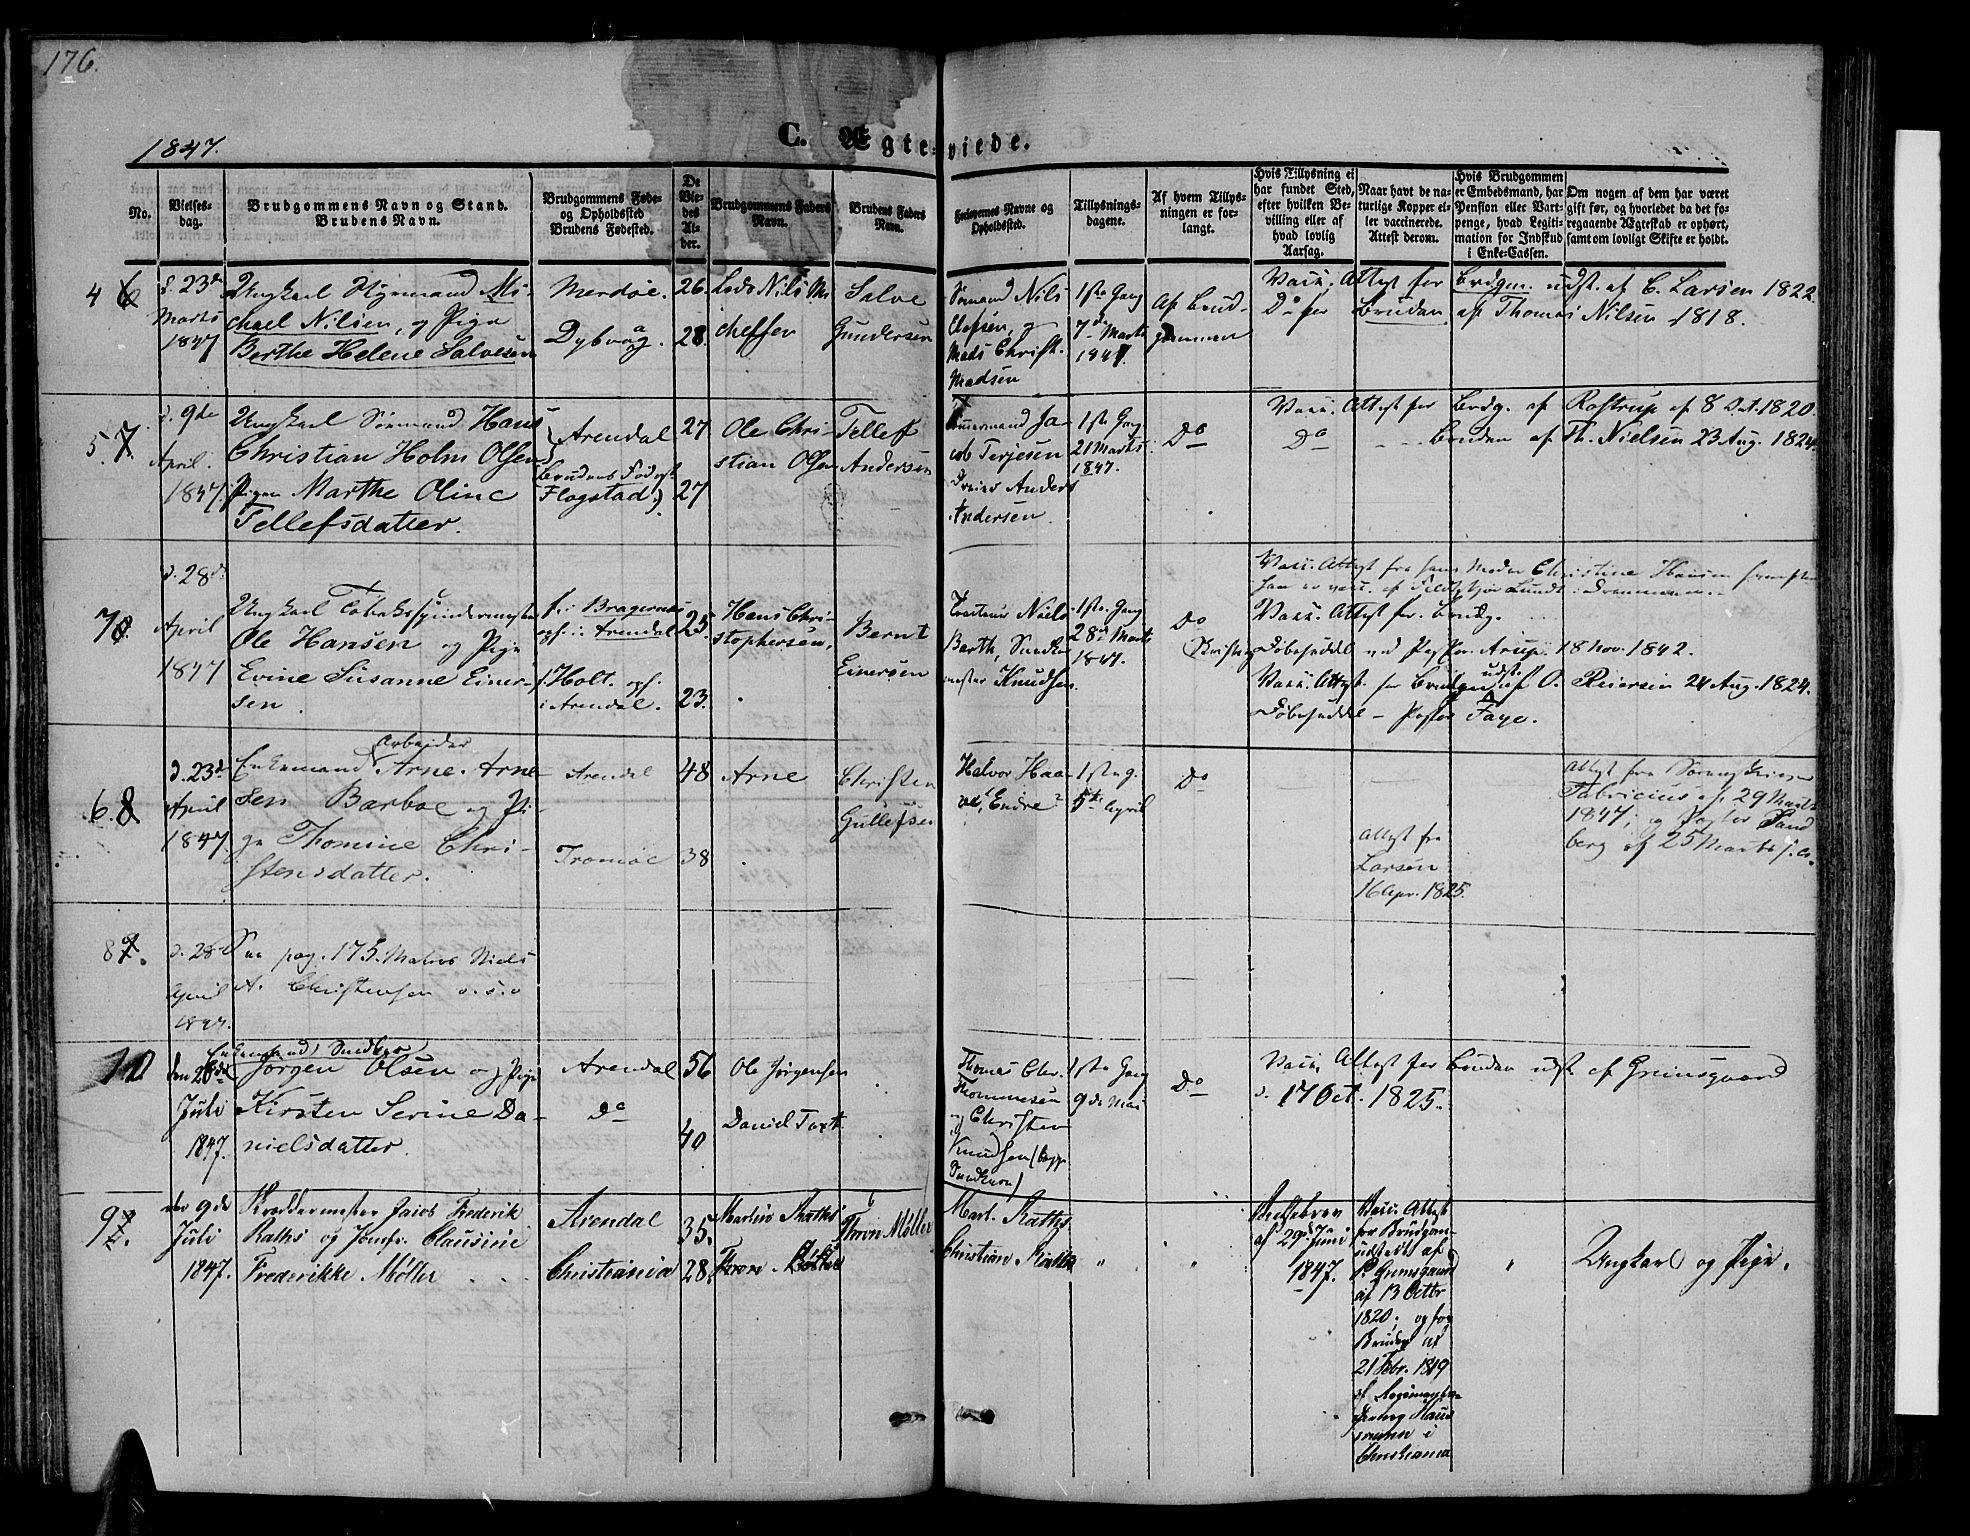 176.
1847.
C. Ægteviede.
No.
Vielses-
dag.
Brudgommens Navn og Stand.
Brudens Navn.
Brudgommens Føde-
og Opholdssted
Brudens Fødested.
De
Vie-
des
Al-
der.
Brudgommens Faders
Navn.
Brudens Faders
Navn.
Forlovernes Navne og
Opholdssted.
Tillysnings-
dagene.
Af hvem Tillys-
ningen er for-
langt.
Hvis Tillysning ei
har fundet Sted,
efter hvilken Be-
villing eller af
hvad lovlig
Aarsag.
Naar havt de na-
turlige Kopper el-
ler vaccinerede.
Attest derom.
Hvis Brudgommen
er Embedsmand, har
Pension eller Vart-
penge, hvad Legiti-
mation for Indskud
i Enke-Cassen.
Om nogen af dem har været
gift før, og hvorledes da det fo-
regaaende Ægteskab er ophørt,
samt om lovligt Skifte er holdt.
4 6
d. 23de
Marts
1847
Ungkarl Mi-
chael Nilsen, og Pige
Berthe Helene Salvesen
Merdøe.
Dybvaag.
26.
28.
Lods Nils Mi
chelsen
Salve
Gundersen
Sømand Nils
Olefsen, og
Mads Christ.
Madsen
1ste Gang
7de Marts
1847.
Af Brud-
gommen
Vacc. Attest for Brdgm. udst. af C. Larsen 1822.
Do for Bruden af Thomas Nilsen 1818.
5. 7.
d. 9de
April.
1847
Ungkarl Sømand Hans
Christian Holm Olsen
Pigen Marthe Oline
Tellefsdatter.
Arendal
Brudens Fødest.
Flagstad.)
27
27
Ole Chri-
stian Olsen
Tellef
Andersen
Ja-
cob Terjesen
Anders
Andersen.
1ste Gang
21 Marts
1847.
Do
Vacc. Attest for Brdg. af Rostrup af 8 Oct. 1820.
Do Bruden af Th. Nielsen 23 Aug. 1824.
7 8.
d. 28de
April
1847
Ungkarl Tobaksspindermester
Ole Hansen og Pige
Evine Susanne Einer-
sen.
f. i Bragernes
opf. i Arendal
f. Holt. opf.
i Arendal.
25.
23.
Hans Chri-
stophersen,
Bernt
Einersen
Niels
Barth, Snedker
mester Knudsen.
1ste Gang
28de Marts
1847.
Do
Vacc. Attest fra hans Moder Christine Hansen
han er vacc. af Lundt i Drammen.
Vacc. Attest for Brudg.
Døbeseddel ved Pastor Arup. 18 Nov. 1842.
Vacc. Attest. for Bruden udst. af O. Reiersen 24 Aug. 1824.
Døbeseddel - Pastor Faye.
6. 8
d. 23de
April
1847
Enkemand Arbeider Arne Arne-
sen Barboe og Pi-
ge Thomine Chri-
stensdatter.
Arendal
Tromøe
48
38
Arne
Christen
Gullefsen
Halvor Haa-
1ste g.
5te April
Do
Attest fra
Larsen
16 Apr. 1825.
Attest fra
Fabricius af 29 Marts
1847, og Pastor Sand
berg af 25 Marts s. A.
8 9.
d. 28de
April
1847.
Paa pag. 175. Matros Niels
A. Christensen o.s.v
10
den 28de
Juli
1847.
Enkemand, Snedker
Jørgen Olsen og Pige
Kirsten Serine Da-
nielsdatter.
Arendal
Do
56
40
Ole Jørgensen
Daniel
Thomas Chr.
Thommesen
og Christen
Knudsen (begge
Snedkere)
1ste Gang
9de Mai
Do
Vacc. Attest for Bruden udst. af Grimsgaard
d. 17 Oct. 1825.
9
den 9de
Juli
1847.
Skræddermester Jacob Frederik
Raths og Jomfr. Clausine
Frederikke Møller
Arendal
Christiania
35.
28.
Martin Raths
Thron Møller
Mart. Raths
Christian Raths
"
"
af 29de Juni
1847.
Vacc. Attest
for Brudgom.
udstedt af
P. Grimsgaard
af 13 Octbr
1820, og for
Bruden af
21 Febr. 1819
i
Christiania
"
Ungkarl og Pige.